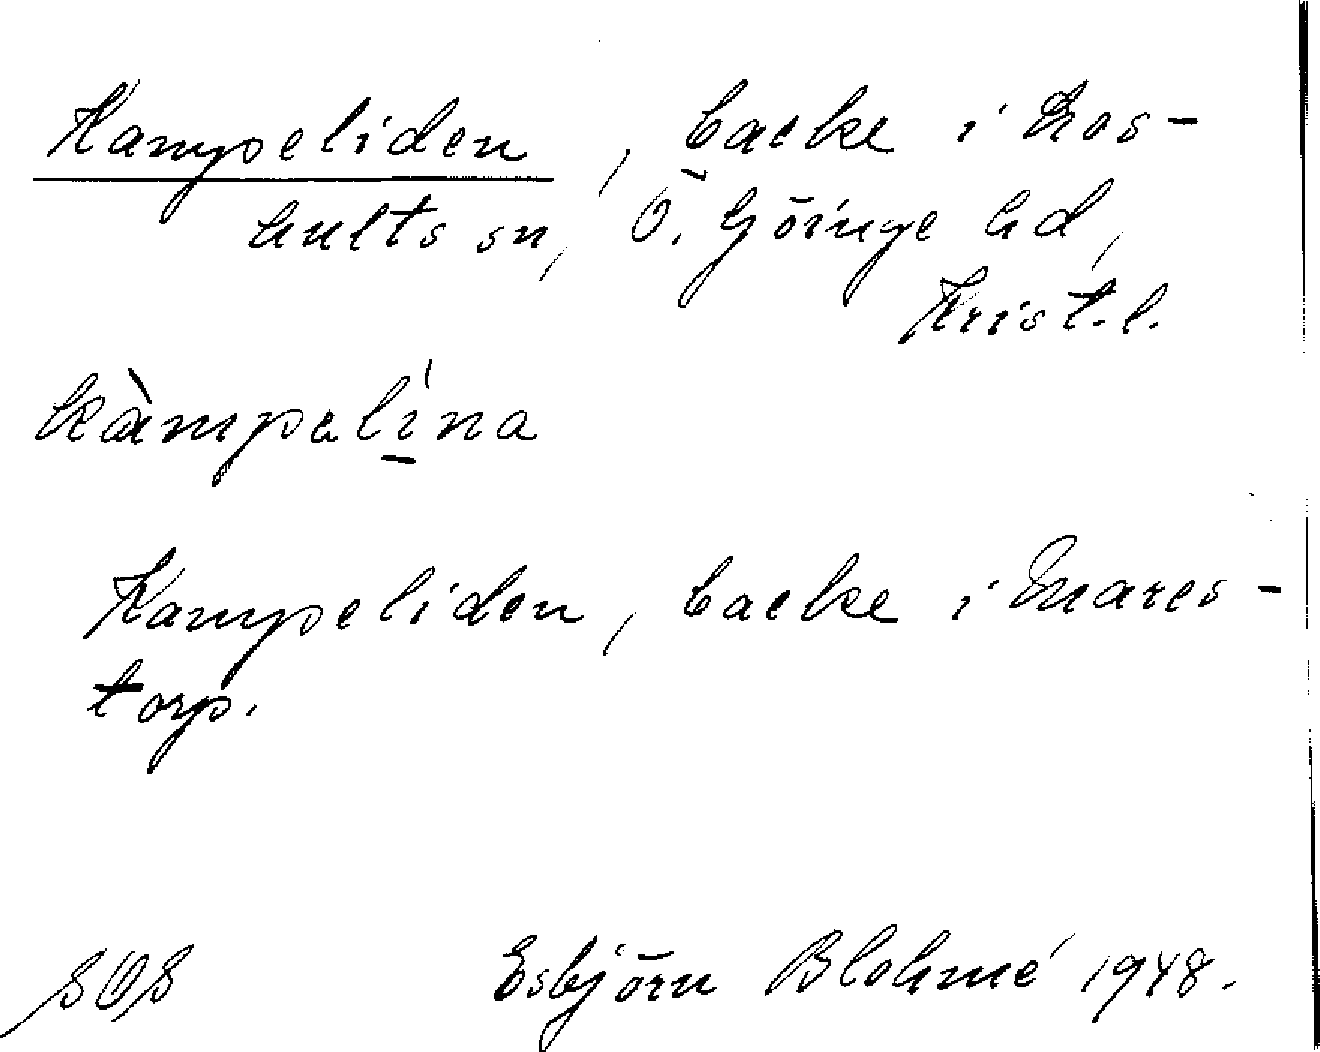 Kampeliden, backe i Los-
hults sn, Ö. Göinge hd,
Krist. l.
kàmpəlína
Kampeliden, backe i Mares-
torp.
SOS Esbjörn Blohmé 1948.